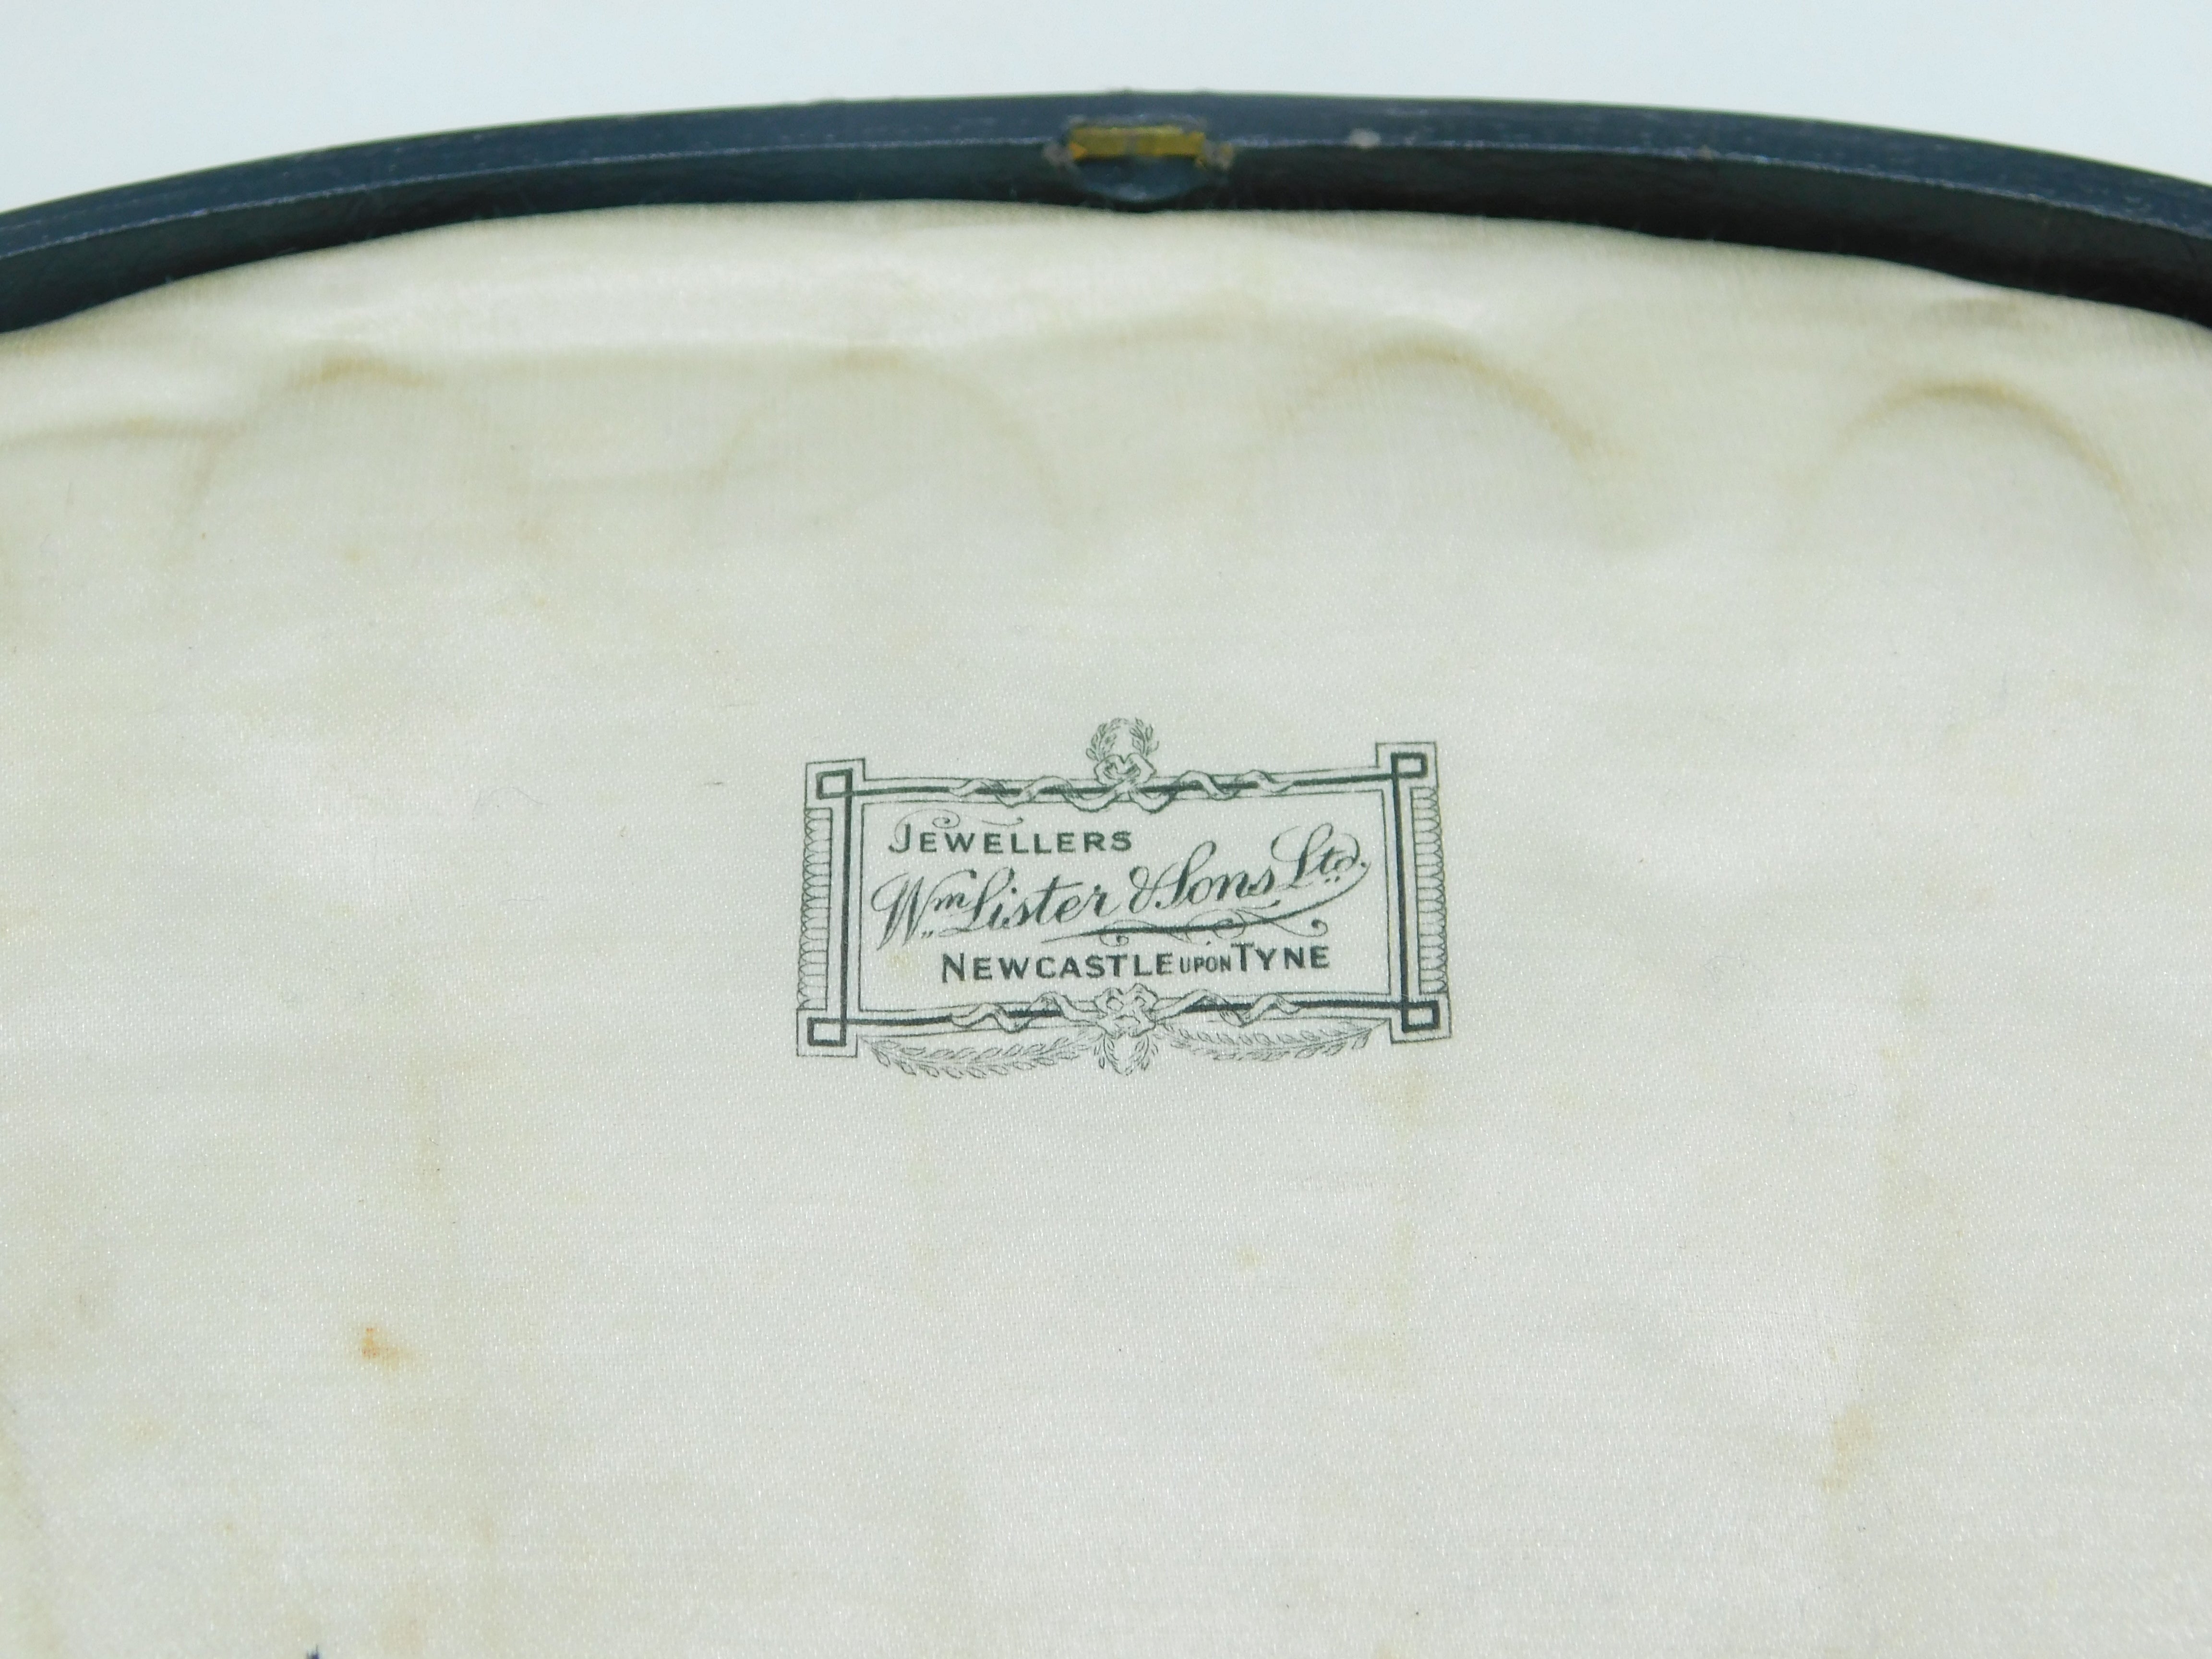 JEWELLERS
Wm Lister & Sons Ltd.
NEWCASTLE UPON TYNE